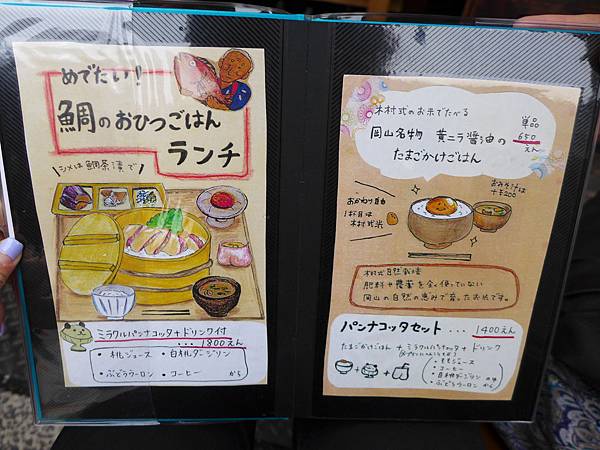 めでたい!
鯛のおひつごはん
ランチ
\シメは鯛茶漬で/
ミラクルパンナコッタ+ドリンク付
・・・1800えん
・桃ジュース ・白桃ダージリン
・ぶどうウーロン ・コーヒー から
木村式のお米でたべる
岡山名物 黄ニラ醤油の
たまごかけごはん
単品
650
えん
おかわり自由
1杯目は
木村式米
おみそ汁は
+¥200
木村式自然栽培
肥料や農薬を全く使っていない
岡山の自然の恵みで育ったお米です。
パンナコッタセット ・・・ 1400えん
たまごかけごはん + ミラクルパンナコッタ + ドリンク
・ももジュース
・コーヒー
・白桃ダージリン
・ぶどうウーロン から